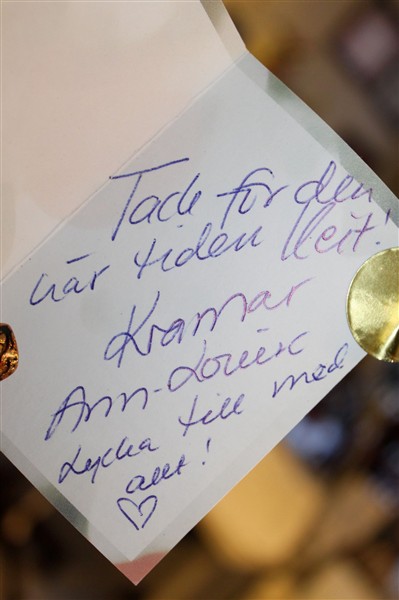 Tack för den
här tiden Leit!
Kramar
Ann-Louise
Lycka till med
allt!